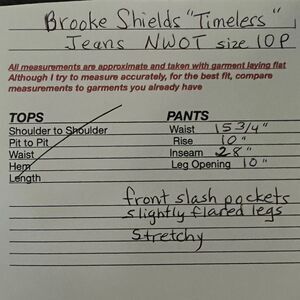 Brooke Shields "Timeless"
Jeans NWOT size 10P
All measurements are approximate and taken with garment laying flat
Although I try to measure accurately, for the best fit, compare
measurements to garments you already have
TOPS
Shoulder to Shoulder
Pit to Pit
Waist
Hem
Length
PANTS
Waist 15 3/4"
Rise 10"
Inseam 28"
Leg Opening 10"
front slash pockets
slightly flared legs
Stretchy